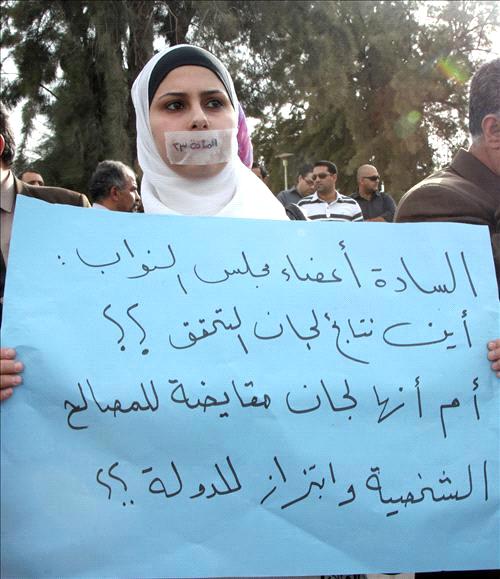 المادة ٢٣
السادة أعضاء مجلس النواب :
أين نتائج لجان التحقق ؟؟
أم أنها لجان مقايضة للمصالح
الشخصية وابتزاز للدولة ؟؟